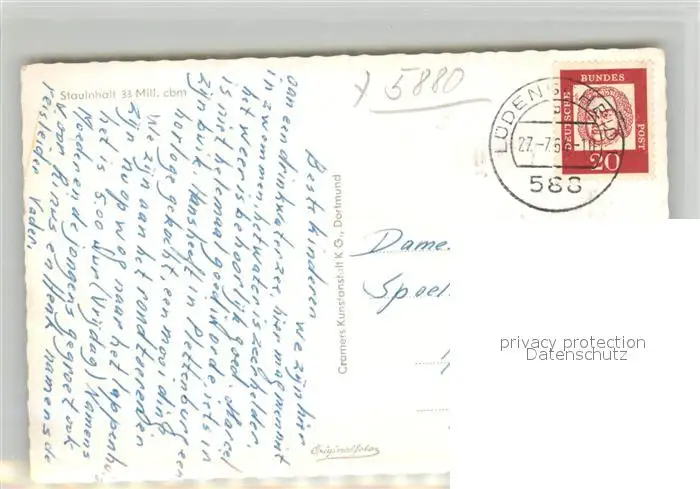 Stauinhalt 33 Mill. cbm
5880
Beste kinderen we zijn hier
aan een drinkwater zee, hier mag men niet
in zwemmen het water is zeer helder.
het weer is behoorlijk goed. Marcel
is niet helemaal goed in orde, iets in
zijn buik. Hans heeft in Plettenburg een
horloge gekocht, een mooi ding
We zijn aan het rondtoeren
Zijn nu op weg naar het
het is 5.00 uur (Vrijdag) Namens
Moeder en de jongens gegroet ook
v. oom Rinus en Henk namens de
reisleider Vader.
Cramers Kunstanstalt K G., Dortmund
Originalfoto
LÜDENSCHEID
27.-7.6
588
DEUTSCHE
BUNDES
POST
20
Dame.
Spoel
privacy protection
Datenschutz